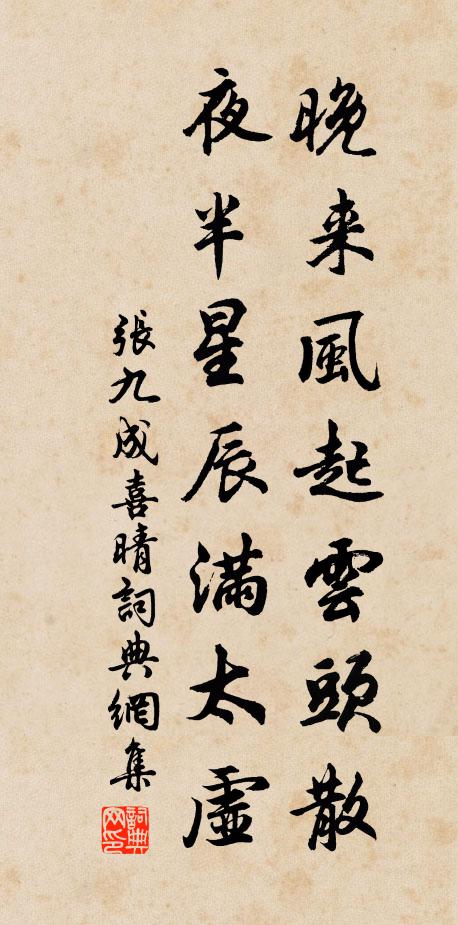 晚来風起雲頭散
夜半星辰滿太虛
張九成喜晴詞典網集
詞典网印